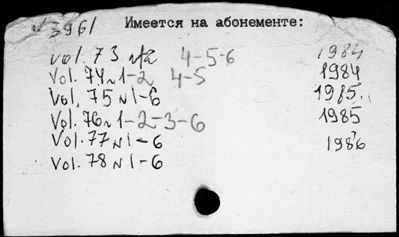 ✓ 3961 Имеется на абонементе:
vol. 73 № 4-5-6 1984
Vol. 74 № 1-2 4-5 1984
Vol. 75 № 1-6 1985
Vol. 76 № 1-2-3-6 1985
Vol. 77 № 1-6 1986
Vol. 78 № 1-6